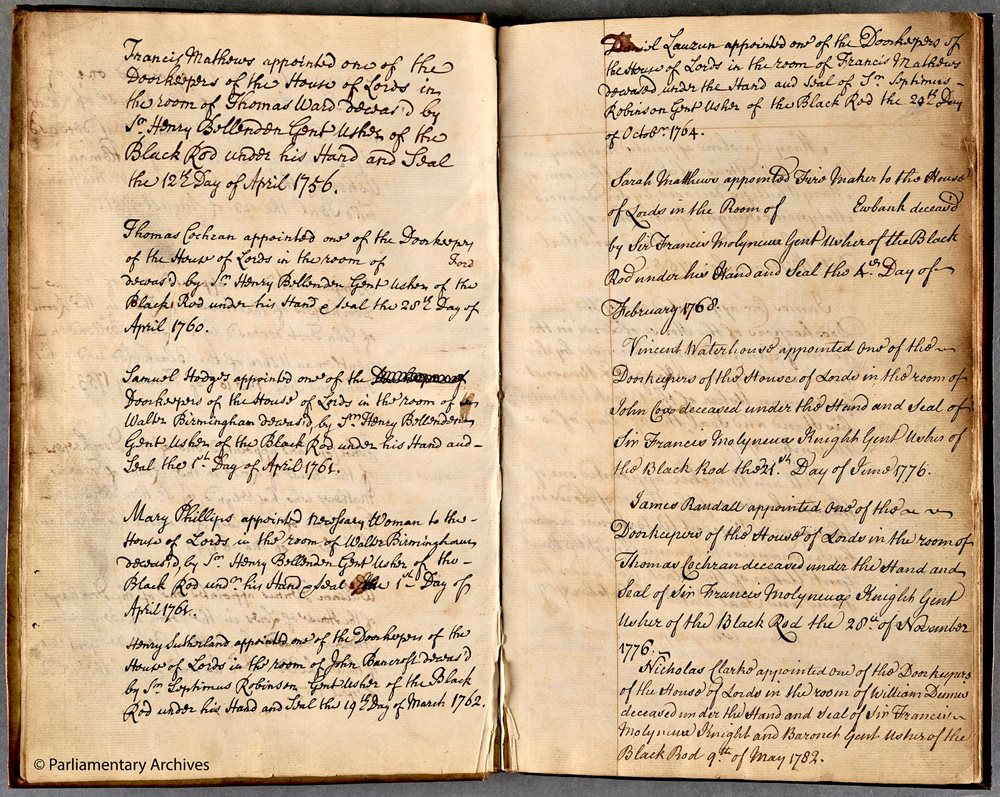 Francis Mathews appointed one of the
Doorkeepers of the House of Lords in
the room of Thomas Ward deceas'd by
Sr. Henry Bellenden Gent Usher of the
Black Rod under his Hand and Seal
the 12th Day of April 1756.
Thomas Cochran appointed one of the Doorkeepers
of the House of Lords in the room of Ford
deceas'd by Sr. Henry Bellenden Gent Usher of the
Black Rod under his Hand & Seal the 28th Day of
April 1760.
Samuel Hodges appointed one of the
Doorkeepers of the House of Lords in the room of
Walter Birmingham deceas'd by Sr. Henry Bellenden
Gent Usher of the Black Rod under his Hand and
Seal the 1st Day of April 1761.
Mary Phillips appointed Necessary Woman to the
House of Lords in the room of Walter Birmingham
deceas'd, by Sr. Henry Bellenden Gent Usher of the
Black Rod undr. his Hand & Seal the 1st Day of
April 1761.
Henry Sutherland appointed one of the Doorkeepers of the
House of Lords in the room of John Bancroft deceas'd
by Sr. Septimus Robinson Gent Usher of the Black
Rod under his Hand and Seal the 19th Day of March 1762.
© Parliamentary Archives
Daniel Lauzun appointed one of the Doorkeepers of
the House of Lords in the room of Francis Mathews
deceased under the Hand and Seal of Sr. Septimus
Robinson Gent Usher of the Black Rod the 29th Day
of Octobr. 1764.
Sarah Matthews appointed Fire Maker to the House
of Lords in the Room of Ewbank deceas'd
by Sir Francis Molyneux Gent Usher of the Black
Rod under his Hand and Seal the 4th Day of
February 1768.
Vincent Waterhouse appointed One of the
Doorkeepers of the House of Lords in the room of
John Cox deceased under the Hand and Seal of
Sir Francis Molyneux Knight Gent Usher of
the Black Rod the 21st Day of June 1776.
James Randall appointed One of the
Doorkeepers of the House of Lords in the room of
Thomas Cochran deceased under the Hand and
Seal of Sir Francis Molyneux Knight Gent
Usher of the Black Rod the 28th of November
1776.
Nicholas Clarke appointed One of the Doorkeepers
of the House of Lords in the room of William Dennis
deceased under the Hand and Seal of Sir Francis
Molyneux Knight and Baronet Gent Usher of the
Black Rod 9th of May 1782.